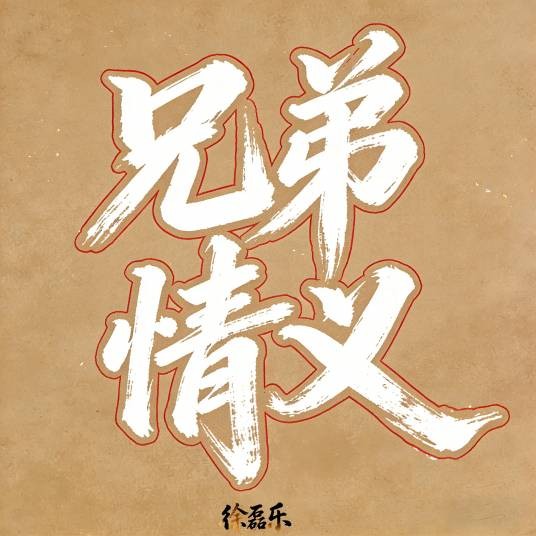 兄弟
情义
徐磊乐